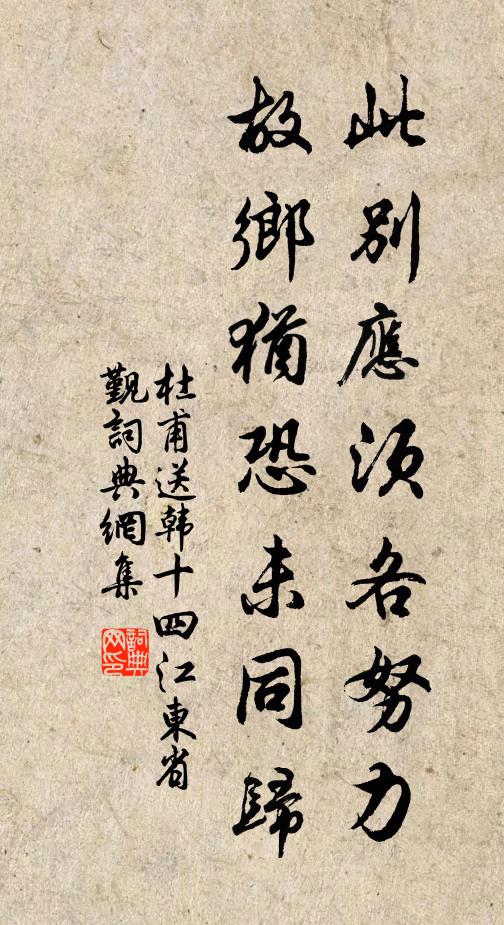 此別應須各努力
故鄉猶恐未同歸
杜甫送韩十四江東省
觐詞典網集
詞典
网印